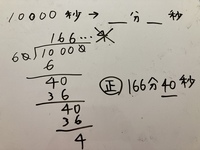 10000秒→__分__秒
166…4
60)10000
6
40
36
40
36
4
正 166分40秒